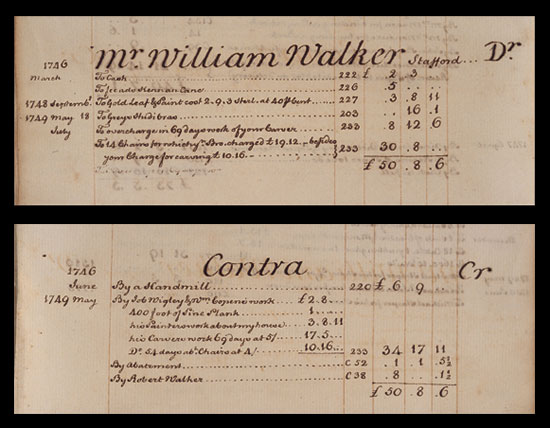 1746 Mr. William Walker Stafford... Dr
March To Cash 222 £ 2 3
To 226 . 5 . . .
1748 Septembr. To Gold Leaf & Paint cost 2..9..3 Sterl. at 40 Cent 227 . 3 . 8 11
1749 May 18 To Greys Hudibras 203 . . 16 . 1
July To overcharge in 69 days work of your Carver 233 . 8 . 12 . 6
To 14 Chairs for which yr. Bro. charged £19.12.. besides
your Charge for carving £10.16 } 233 30 . 8 . . .
£ 50 . 8 . 6
1746 Contra Cr
June By a Handmill 220 £ 6 . 9
1749 May By Job Wigley & Wm. Copein's work £ 2.8..
400 foot of Pine Plank 1....
his Painters work about my house 3.8.11
his Carvers work 69 days at 5/ 17.5..
Do. 54 days abt. Chairs at 4/ 10.16.. 233 34 17 11
By Abatement C 52 . 1 . 1 . 5½
By Robert Walker C 38 . 8 . . . 1½
£ 50 . 8 . 6